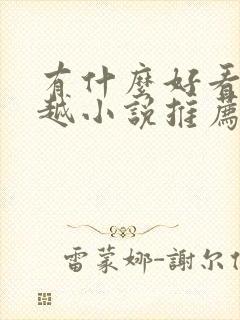 有什麼好看
越小說推薦
雷蒙娜-謝爾